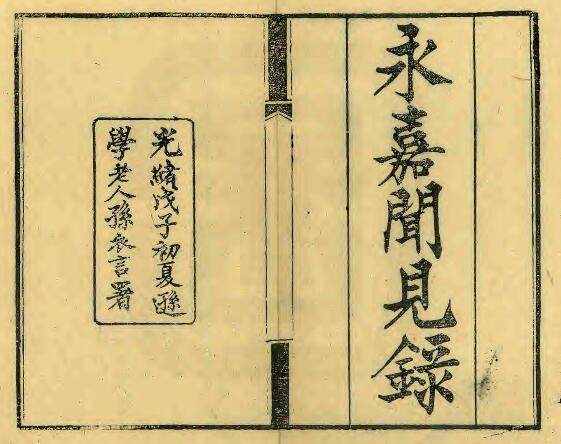 永嘉聞見錄
光緒戊子初夏遜
學老人孫衣言署